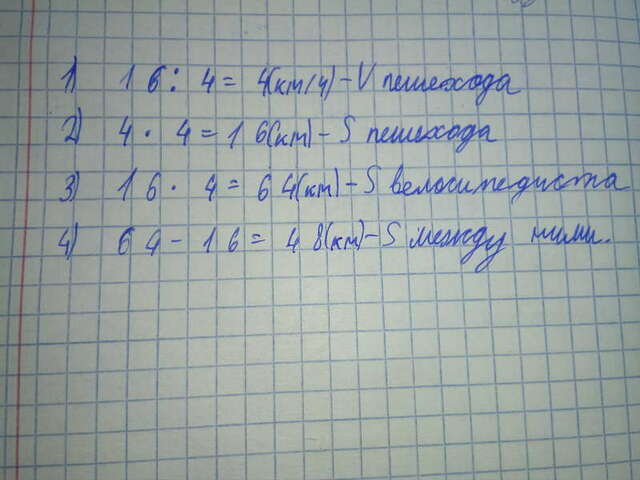 1) 16 : 4 = 4(км/ч) – V пешехода
2) 4 · 4 = 16(км) – S пешехода
3) 16 · 4 = 64(км) – S велосипедиста
4) 64 – 16 = 48(км) – S между ними.